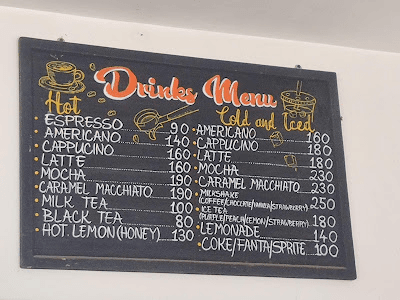 Drinks Menu
Hot
ESPRESSO 90
AMERICANO 140
CAPPUCINO 160
LATTE 160
MOCHA 190
CARAMEL MACCHIATO 190
MILK TEA 100
BLACK TEA 80
HOT LEMON (HONEY) 130
Cold and Iced
AMERICANO 160
CAPPUCINO 180
LATTE 180
MOCHA 230
CARAMEL MACCHIATO 230
MILKSHAKE
(COFFEE/ /STRAWBERRY) 250
ICE TEA
(PURPLE/PEACH/LEMON/STRAWBERRY) 180
LEMONADE 140
COKE/FANTA/SPRITE 100